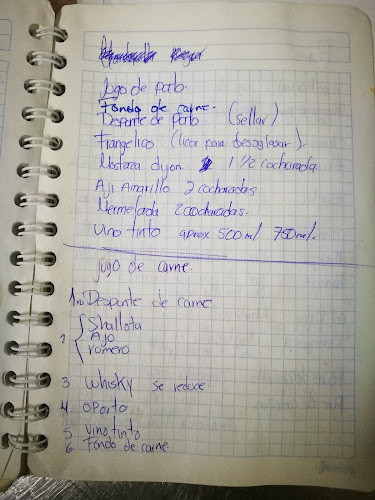 Jugo de pato.
Fondo de carne.
Despunte de pato (sellar)
Frangelico (licor para desoglasar).
Mostaza dijon 1 1/2 cucharada.
Aji Amarillo 2 cucharadas
Mermelada 2 cucharadas.
Vino tinto aprox 500 ml 750 ml.
jugo de carne.
1. Despunte de carne
2 { Shallota
Ajo
romero
3 Whisky se reduce.
4. oporto
5 Vino tinto
6 Fondo de carne